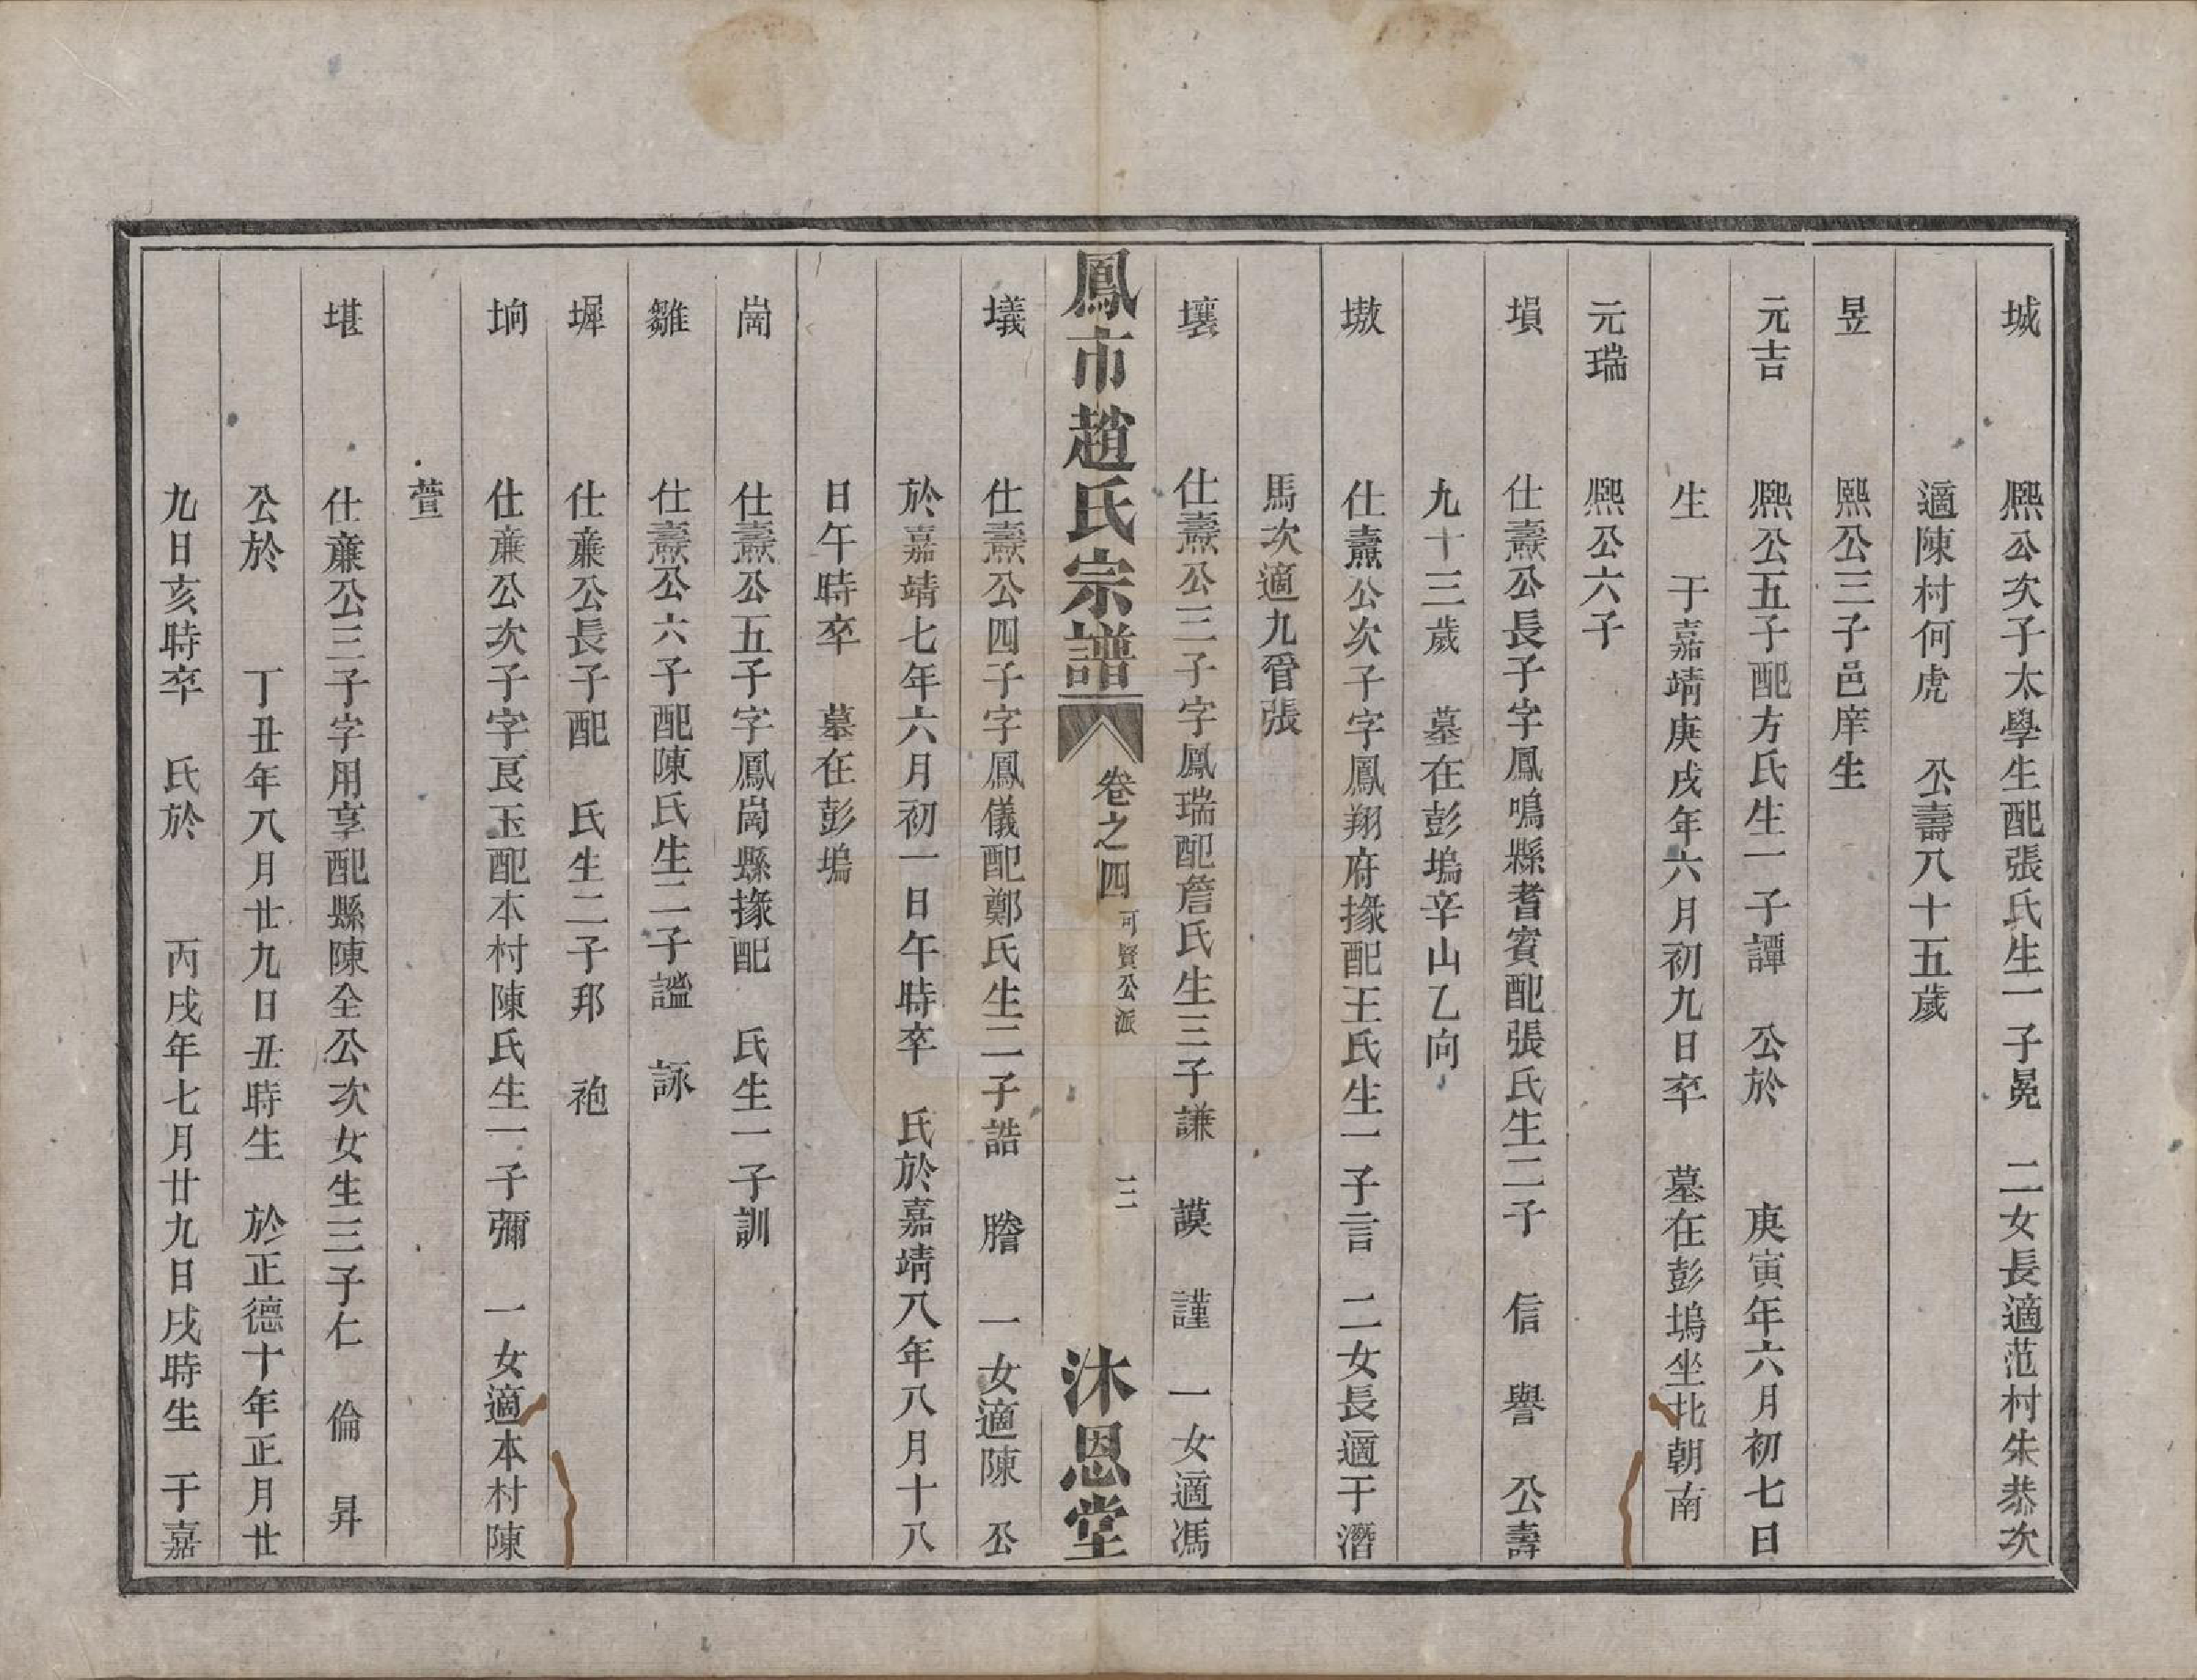 城　熙公次子太學生配張氏生一子冕　二女長適范村朱恭次
適陳村何虎　公壽八十五歲
昱　熙公三子邑庠生
元吉　熙公五子配方氏生一子譚　公於　庚寅年六月初七日
生　于嘉靖庚戌年六月初九日卒　墓在彭塢坐北朝南
元瑞　熙公六子
塤　仕燾公長子字鳳鳴縣耆賓配張氏生二子　信　譽　公壽
九十三歲　墓在彭塢辛山乙向
墩　仕燾公次子字鳳翔府掾配王氏生一子言　二女長適于潛
馬次適九胥張
壤　仕燾公三子字鳳瑞配詹氏生三子謙　謨　謹　一女適馮
鳳市趙氏宗譜　卷之四　可賢公派　三　沐恩堂
㙯　仕燾公四子字鳳儀配鄭氏生二子誥　謄　一女適陳　公
於嘉靖七年六月初一日午時卒　氏於嘉靖八年八月十八
日午時卒　墓在彭塢
崗　仕燾公五子字鳳崗縣掾配　氏生一子訓
雛　仕燾公六子配陳氏生二子謐　詠
墀　仕亷公長子配　氏生二子邦　袍
坰　仕亷公次子字良玉配本村陳氏生一子彌　一女適本村陳
萱
堪　仕亷公三子字用享配縣陳全公次女生三子仁　倫　昇
公於　丁丑年八月廿九日丑時生　於正德十年正月廿
九日亥時卒　氏於　丙戌年七月廿九日戌時生　于嘉